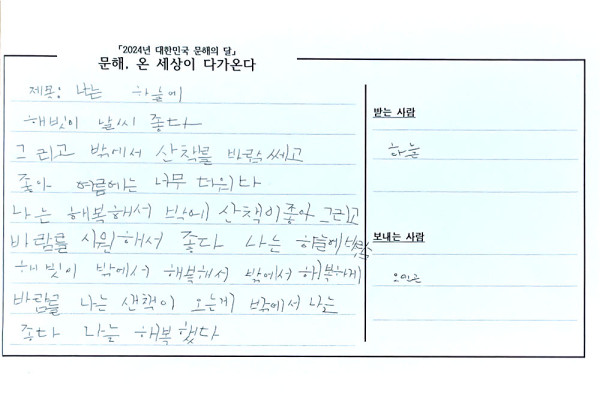 「2024년 대한민국 문해의 달」
문해, 온 세상이 다가온다
제목: 나는 하늘에
해빛이 날씨 좋다
그리고 밖에서 산책를 바람 쎄고
좋아 여름에는 너무 더워다
나는 해복해서 밖에 산책이 좋아 그리고
바람를 시원해서 좋다 나는 하늘에 바람
해빛이 밖에서 해복해서 밖에서 해복하게
바람를 나는 산책이 오는게 밖에서 나는
좋다 나는 해복했다
받는 사람
하늘
보내는 사람